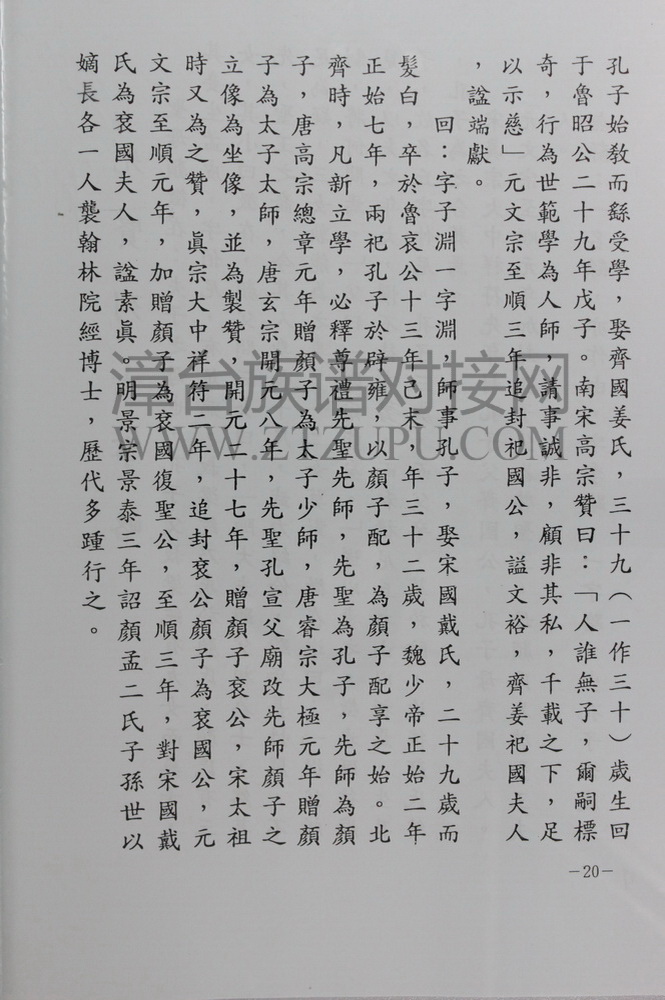 孔子始教而繇受學，娶齊國姜氏，三十九（一作三十）歲生回
于魯昭公二十九年戊子。南宋高宗贊曰：「人誰無子，爾嗣標
奇，行為世範學為人師，請事誠非，顧非其私，千載之下，足
以示慈」元文宗至順三年追封祀國公，謚文裕，齊姜祀國夫人
，謚端獻。
回：字子淵一字淵，師事孔子，娶宋國戴氏，二十九歲而
髮白，卒於魯哀公十三年己未，年三十二歲，魏少帝正始二年
正始七年，兩祀孔子於辟雍，以顏子配，為顏子配享之始。北
齊時，凡新立學，必釋尊禮先聖先師，先聖為孔子，先師為顏
子，唐高宗總章元年贈顏子為太子少師，唐睿宗大極元年贈顏
子為太子太師，唐玄宗開元八年，先聖孔宣父廟改先師顏子之
立像為坐像，並為製贊，開元二十七年，贈顏子兗公，宋太祖
時又為之贊，眞宗大中祥符二年，追封兗公顏子為兗國公，元
文宗至順元年，加贈顏子為兗國復聖公，至順三年，對宋國戴
氏為兗國夫人，謚素眞。明景宗景泰三年詔顏孟二氏子孫世以
嫡長各一人襲翰林院經博士，歷代多踵行之。
－20－
漳台族谱对接网
WWW.ZTZUPU.COM